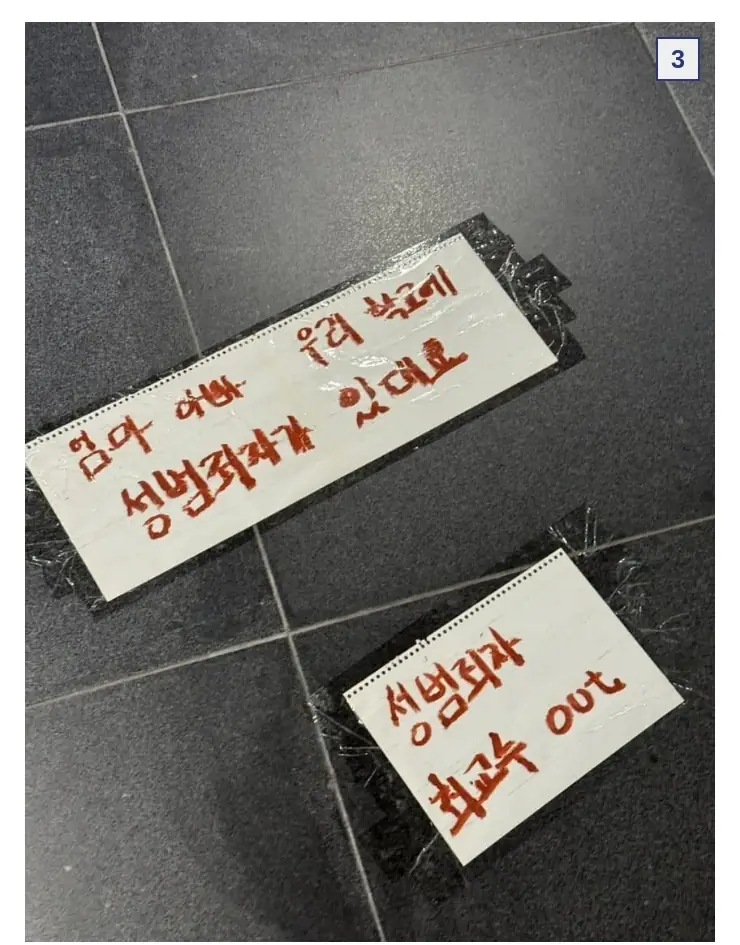 3
엄마 아빠 우리 학교에
성범죄자가 있대요
성범죄자
최교수 out